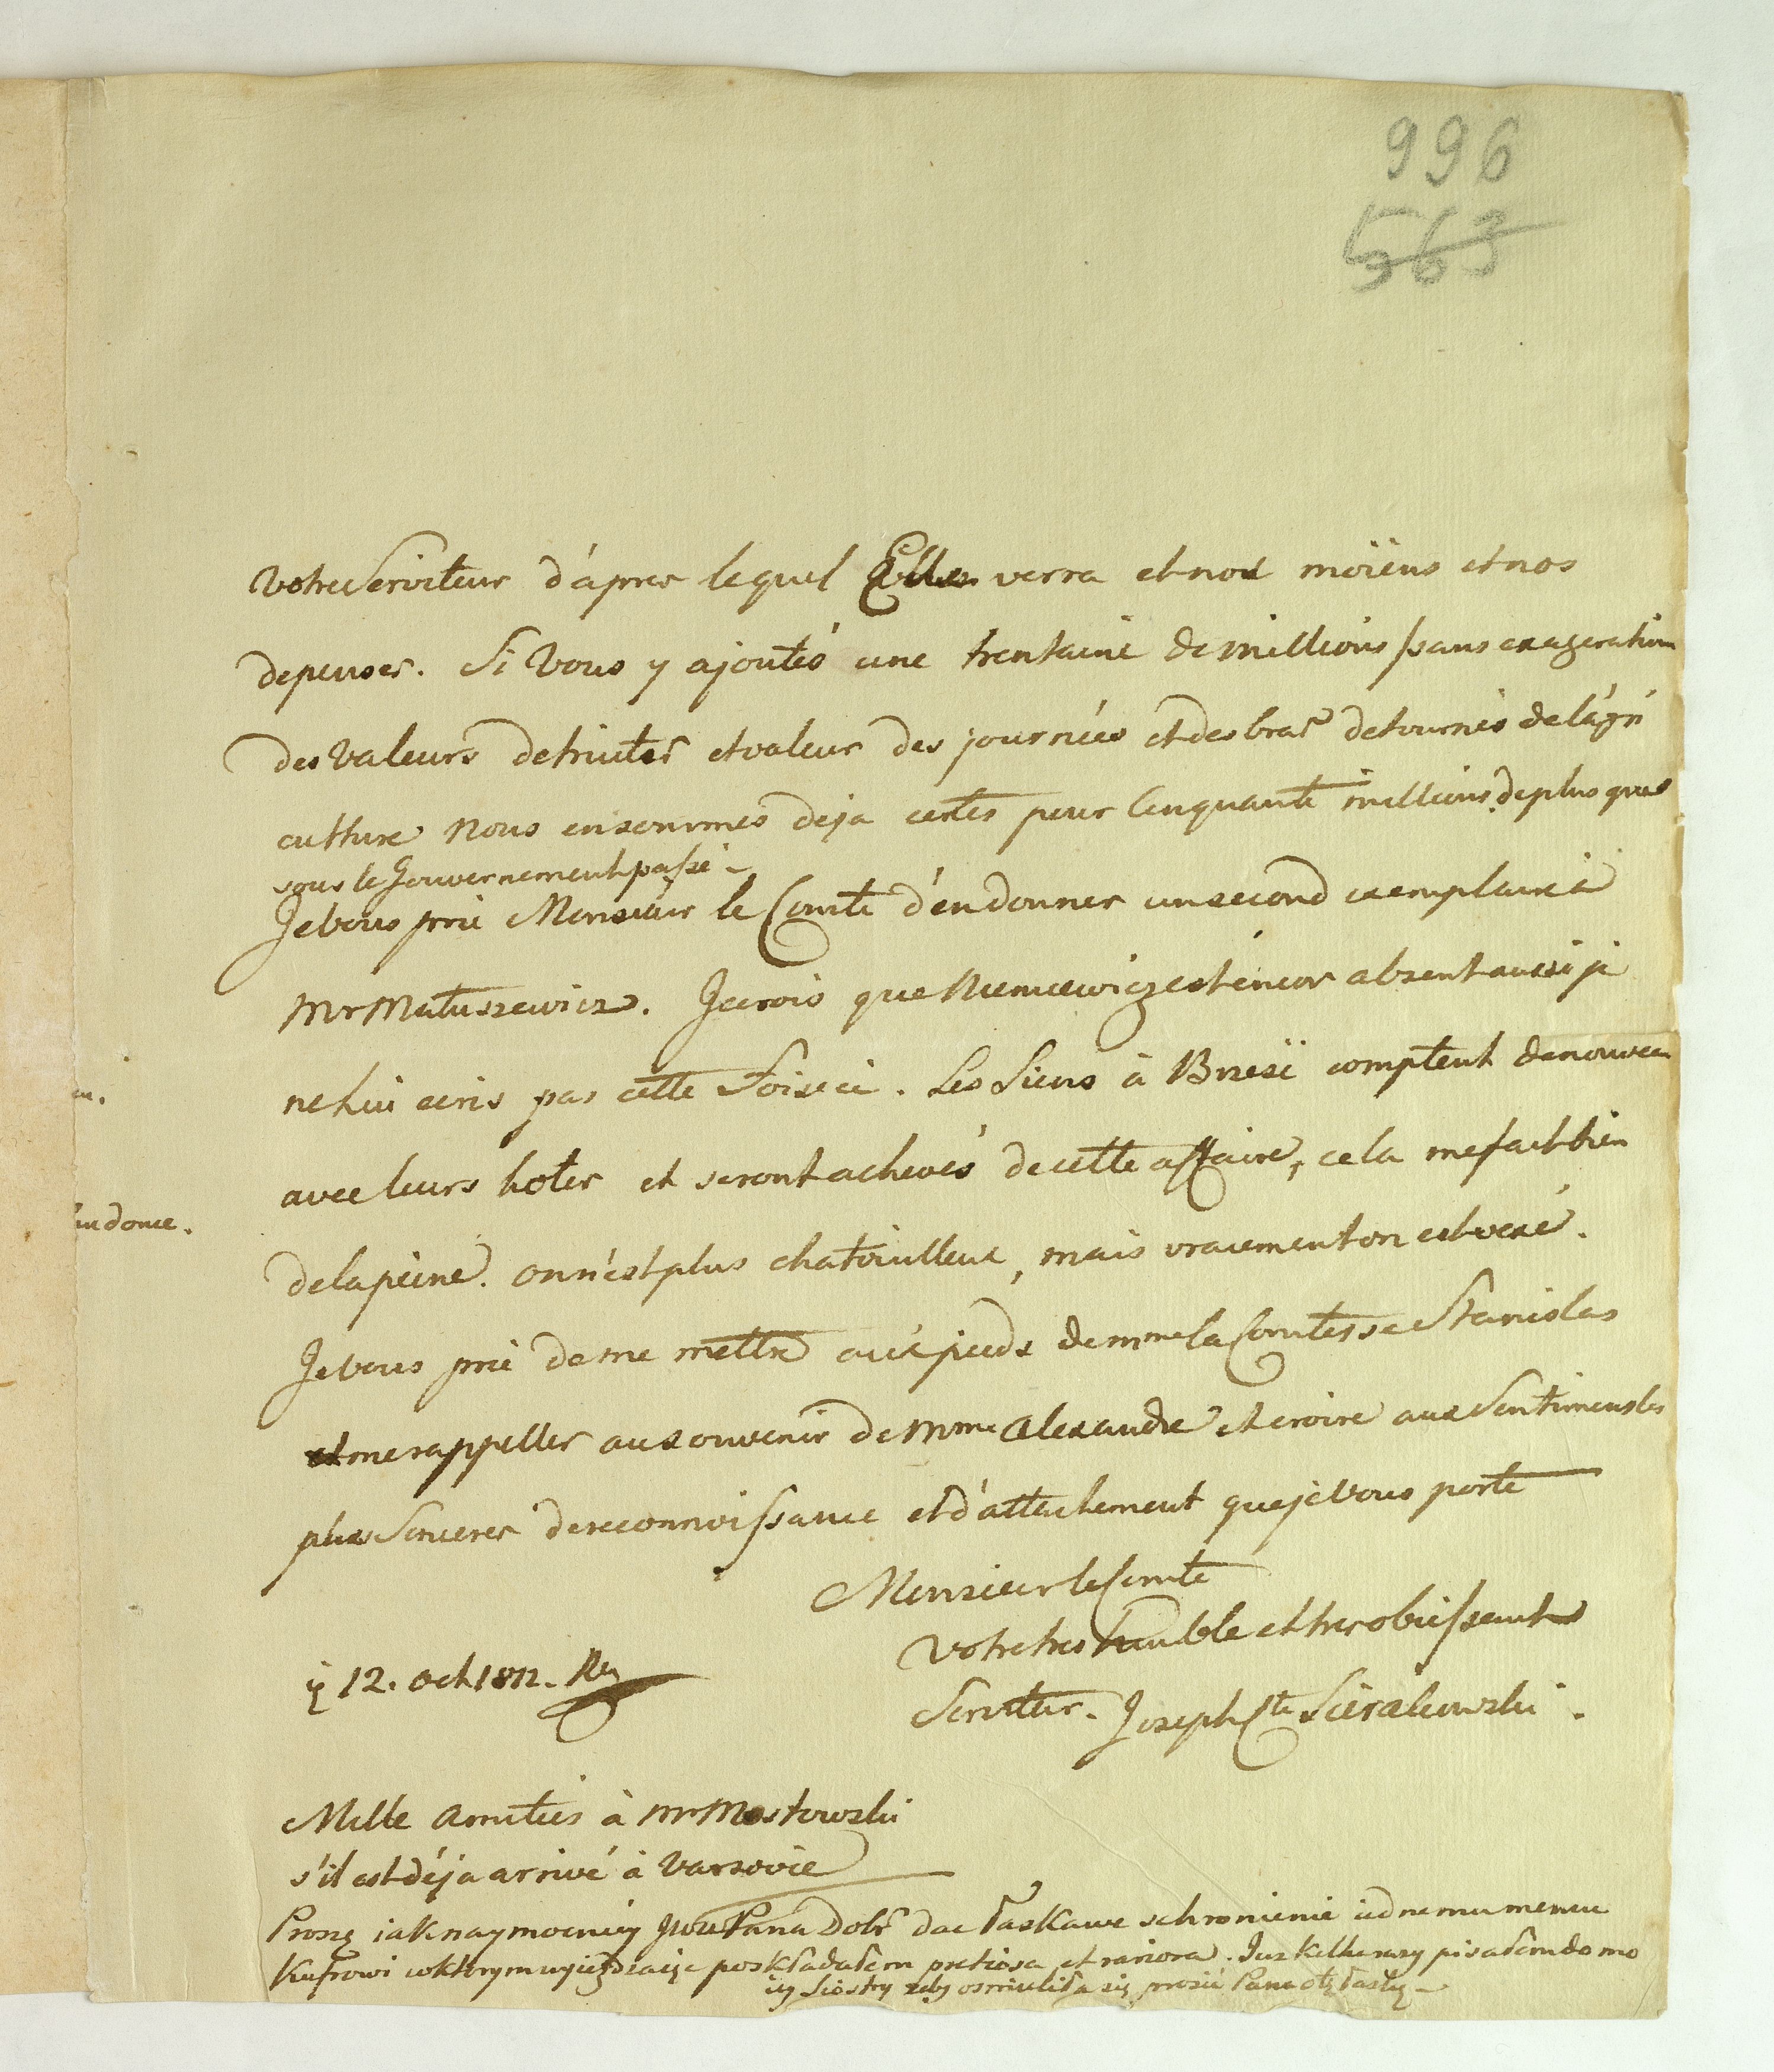 996
563
votre Serviteur d'apres lequel Elle verra et nos moïens et nos
depenses. Si Vous y ajoutés une trentaine de millions /sans exageration
des Valeurs detruites et valeur des journées et des bras detournés de l'agri
culture nous en sommes deja certes pour Cinquante millions de plus que
sous le Gouvernement passé –
Je vous prie Monsieur le Comte d'en donner un second exemplaire à
Mr Matuszewicz. Je crois que Niemcewicz est encor absent aussi je
ne lui ecris pas cette Fois ci. Les Siens à Brzesć comptent de nouveau
avec leurs hotes et seront achevés de cette affaire, cela me fait bien
de la peine. on n'est plus chatouilleux, mais vraiement on est vexé.
Je vous prie de me mettre aux pieds de mme la Comtesse Stanislas
et me rappeller au souvenir de Mme Alexandre et croire aux Sentimens les
plus Sinceres de reconnoissance et d'attachement que je vous porte
Monsieur le Comte
votre tres humble et tres obeissant
Serviteur. Joseph Cte Sierakowski.
ų 12. Oct 1812.
Mille Amitiés à Mr Mostowski
s'il est déja arrivé à Varsovie
Proszę iak naymocniey JWW Pana Dobr dac łaskawe schronienie iednemu memu
Kufrowi w ktorym wyieżdzaiąc poskładałem pretiosa et rariora. Juz kilka razy pisałem do mo
iey Siostry zeby osmieliła się prosić Pana o tę łaskę –
en.